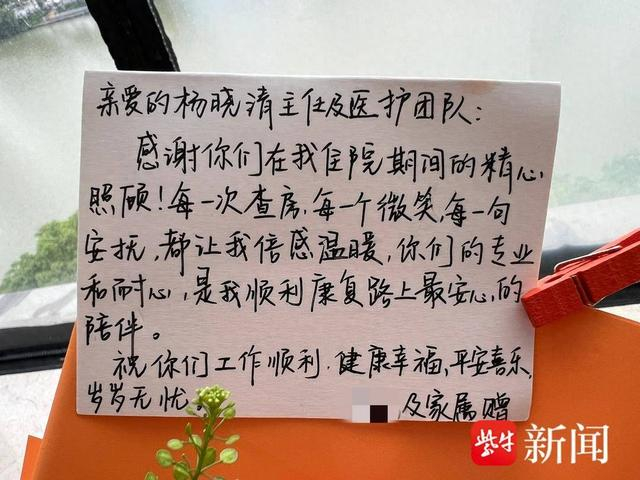 亲爱的杨晓清主任及医护团队:
感谢你们在我住院期间的精心
照顾!每一次查房,每一个微笑,每一句
安抚,都让我倍感温暖,你们的专业
和耐心,是我顺利康复路上最安心的
陪伴。
祝你们工作顺利.健康幸福,平安喜乐,
岁岁无忧。
及家属赠
紫牛 新闻